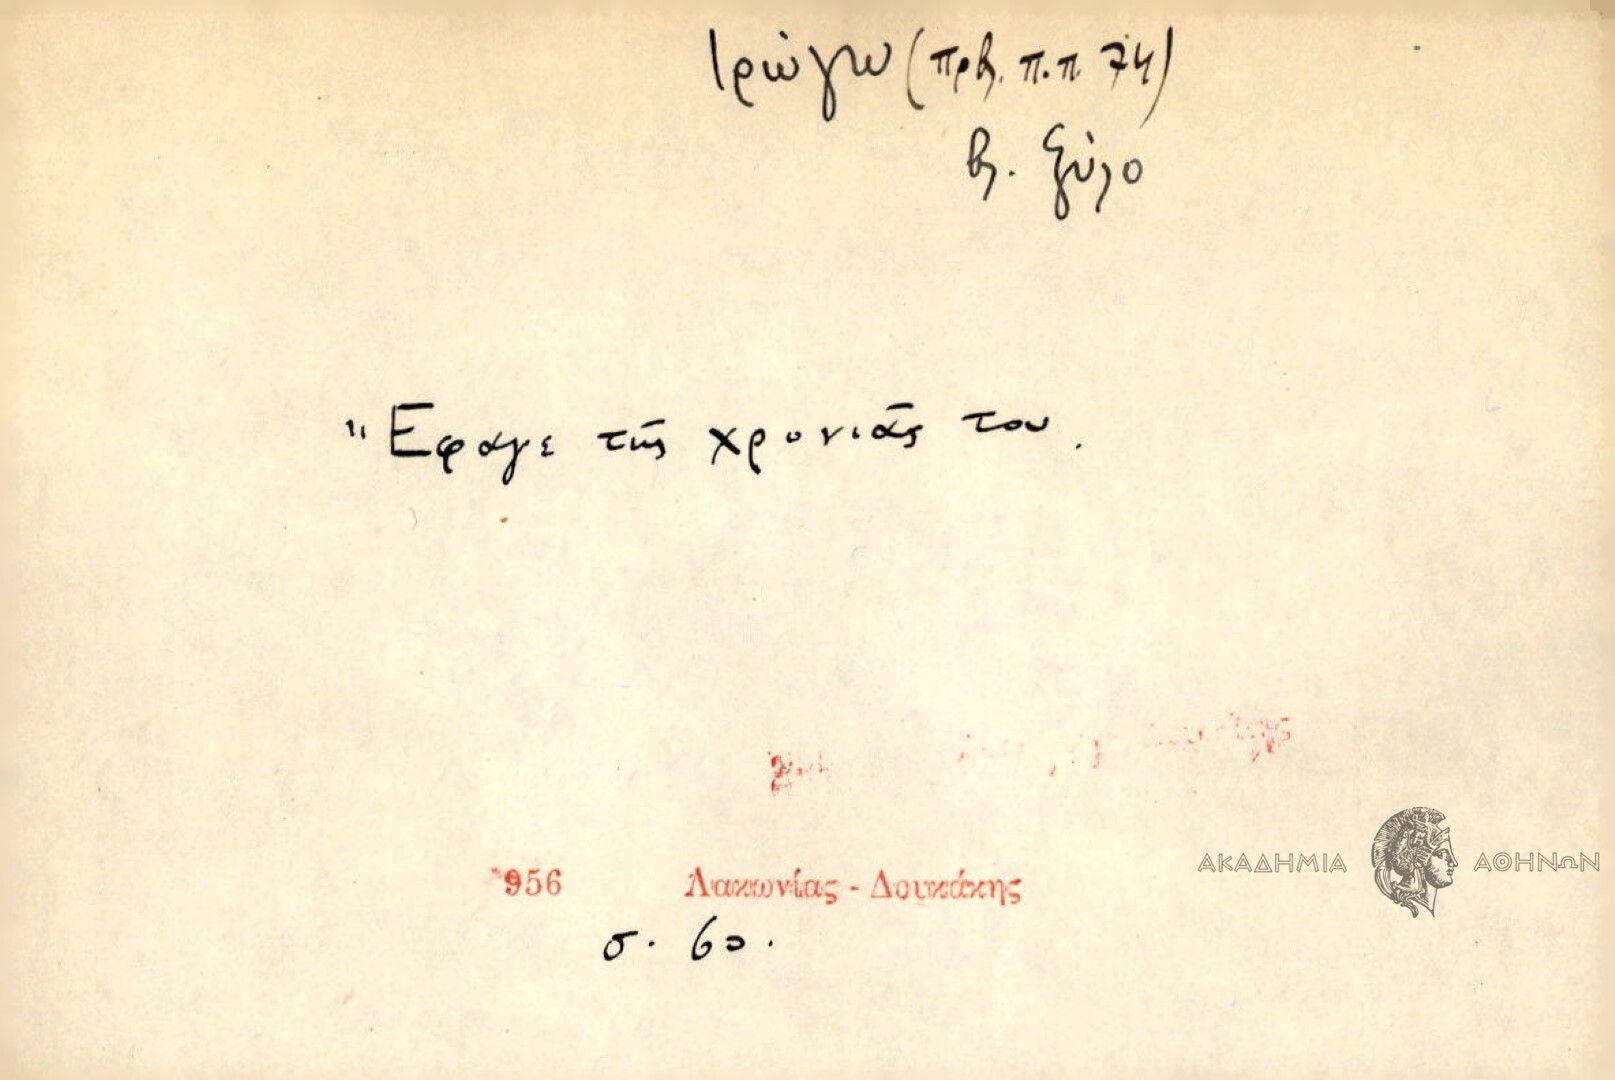 Τρώγω (πρβ. π.π 74)
βλ. ξύλο
"Εφαγε τῆς χρονιᾶς του.
956 Λακωνίας - Δουκάκης
σ. 60.
ΑΚΑΔΗΜΙΑ ΑΘΗΝΩΝ